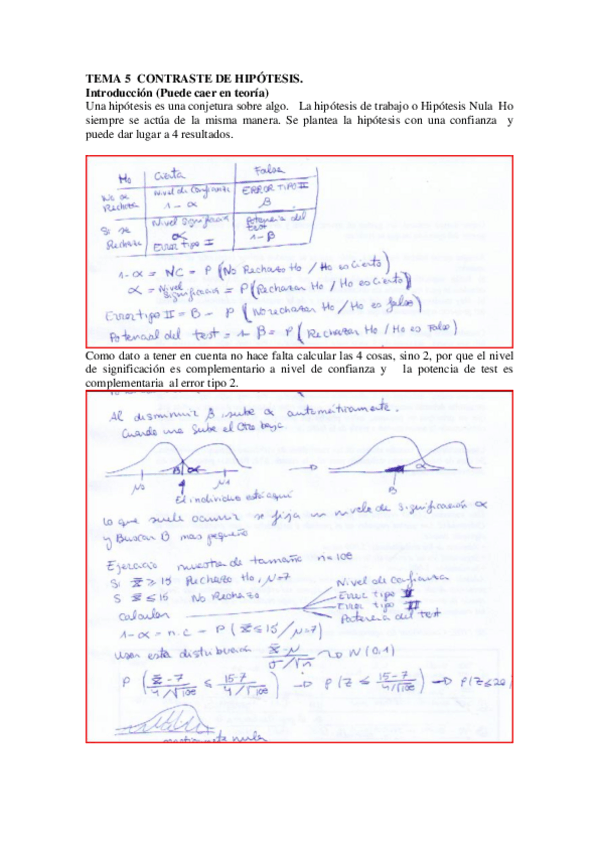 TEMA 5 CONTRASTE DE HIPÓTESIS.
Introducción (Puede caer en teoría)
Una hipótesis es una conjetura sobre algo. La hipótesis de trabajo o Hipótesis Nula Ho
siempre se actúa de la misma manera. Se plantea la hipótesis con una confianza y
puede dar lugar a 4 resultados.
Ho Cierta Falsa
No se Rechaza Nivel de Confianza 1-α ERROR TIPO II β
Si se Rechaza Nivel Significación α Error tipo I Potencia del test 1-β
1-α = NC = P (No Rechazar Ho / Ho es Cierto)
α = Nivel Significación = P (Rechazar Ho / Ho es Cierto)
Error tipo II = B - P (No rechazar Ho / Ho es falso)
Potencial del test = 1- B = P (Rechazar Ho / Ho es Falso)
Como dato a tener en cuenta no hace falta calcular las 4 cosas, sino 2, por que el nivel
de significación es complementario a nivel de confianza y la potencia de test es
complementaria al error tipo 2.
Al disminuir β sube α automáticamente.
Cuando una sube el otro baja
B α
μ0 μ1
El individuo está aquí
α
B
lo que suele ocurrir se fija un nivel de significación α
y Buscar B mas pequeño
Ejercicio muestra de tamaño n=100
Si x̄ ≥ 15 Rechazo Ho, μ=7
S x̄ ≤ 15 No Rechazo
Calcular
Nivel de Confianza
Error tipo I
Error tipo II
Potencia del test
1-α = n.c - P (x̄ ≤ 15 / μ=7)
Usar esta distribución x̄-μ / σ/√n ~ N(0,1)
P (x̄-7 / 4/√100 ≤ 15-7 / 4/√100) → P (Z ≤ 15-7 / 4/√100) → P(Z≤20)
nula